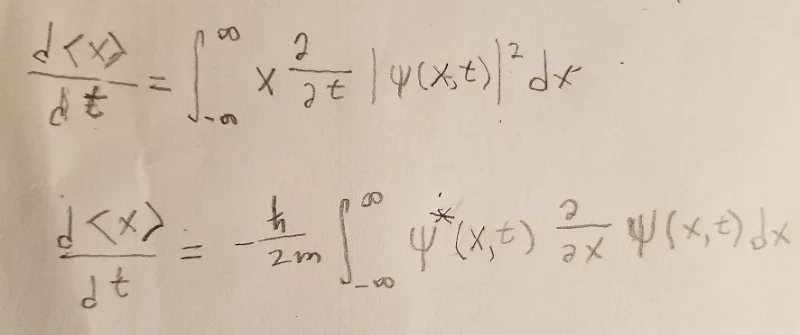 d⟨x⟩/dt = ∫_{-∞}^{∞} x ∂/∂t |ψ(x,t)|² dx
d⟨x⟩/dt = -ħ/2m ∫_{-∞}^{∞} ψ*(x,t) ∂/∂x ψ(x,t) dx